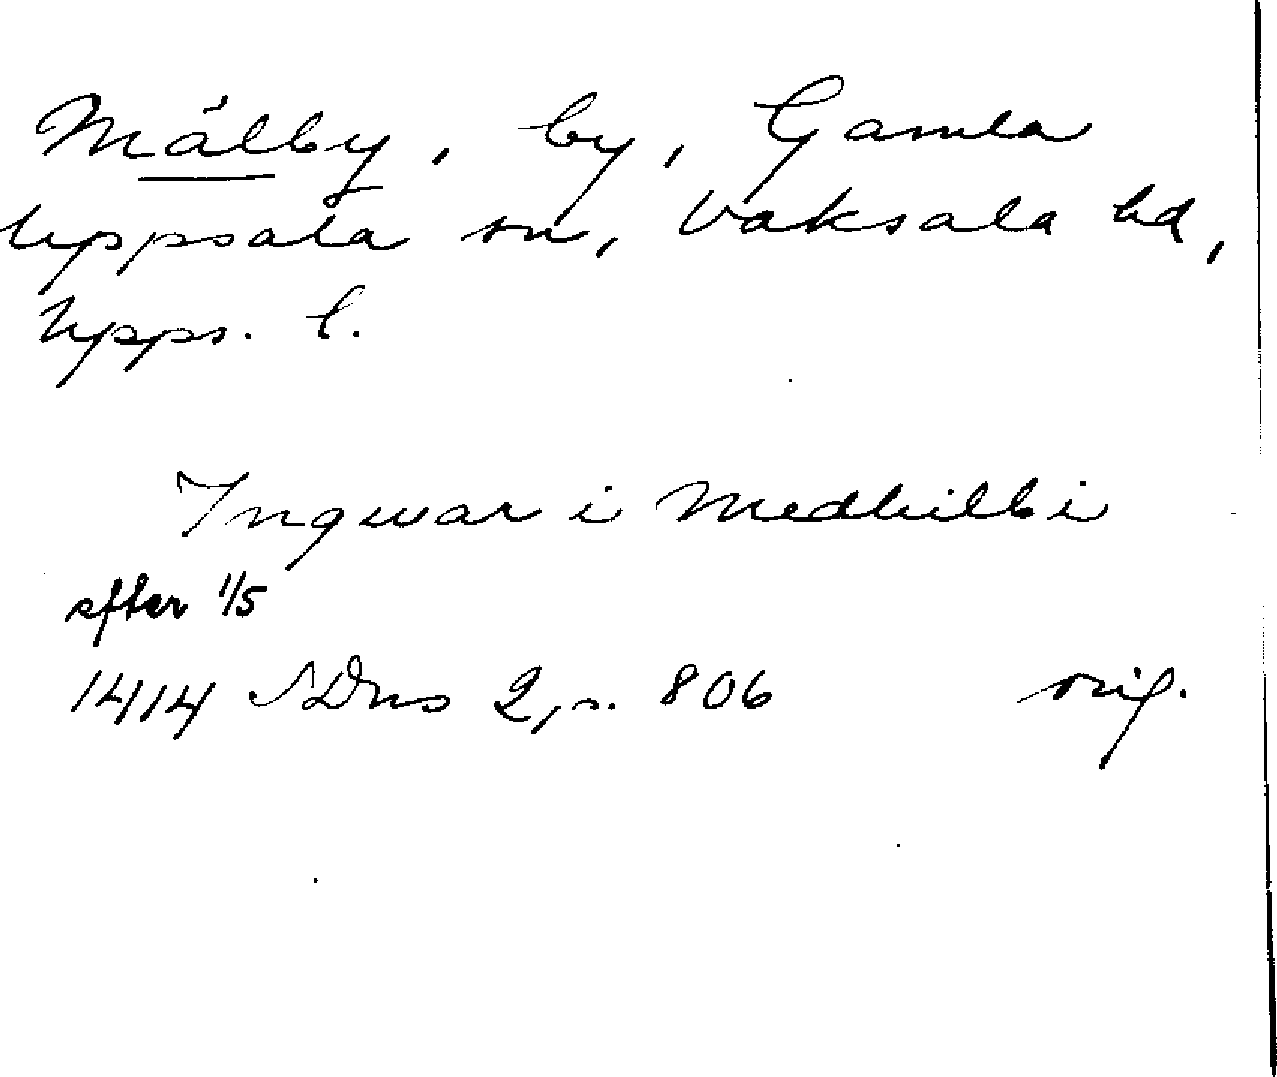 Mälby, by, Gamla
Uppsala sn, Vaksala hd,
Upps. l.
Ingwar i Medhilbi
efter 1/5
1414 SDns 2, s. 806 orig.